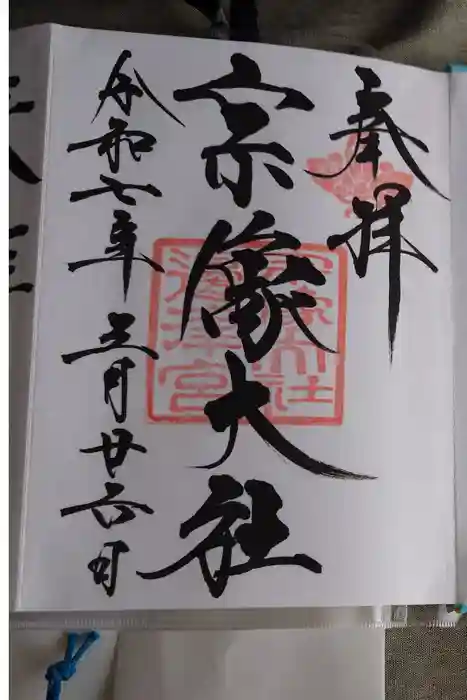 奉拝
宗像大社
令和七年五月廿六日
宗像大社
邊津宮